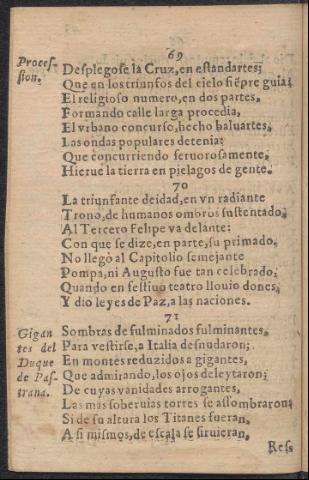 69
Proces-
sion.
Desplegose la Cruz, en estandartes;
Que en los triunfos del cielo siẽpre guia;
El religioso numero, en dos partes,
Formando calle larga procedia,
El vrbano concurso, hecho baluartes,
Las ondas populares detenia:
Que concurriendo feruorosamente,
Hierue la tierra en pielagos de gente.
70
La triunfante deidad, en vn radiante
Trono, de humanos ombros sustentado,
Al Tercero Felipe va delante:
Con que se dize, en parte, su primado.
No llegò al Capitolio semejante
Pompa, ni Augusto fue tan celebrado;
Quando en festiuo teatro llouio dones,
Y dio leyes de Paz, a las naciones.
71
Gigan
tes del
Duque
de Pas-
trana.
Sombras de fulminados fulminantes,
Para vestirse, a Italia desnudaron;
En montes reduzidos a gigantes,
Que admirando, los ojos deleytaron;
De cuyas vanidades arrogantes,
Las mas soberuias torres se assombraron;
Si de su altura los Titanes fueran,
A si mismos, de escala se siruieran,
Ress